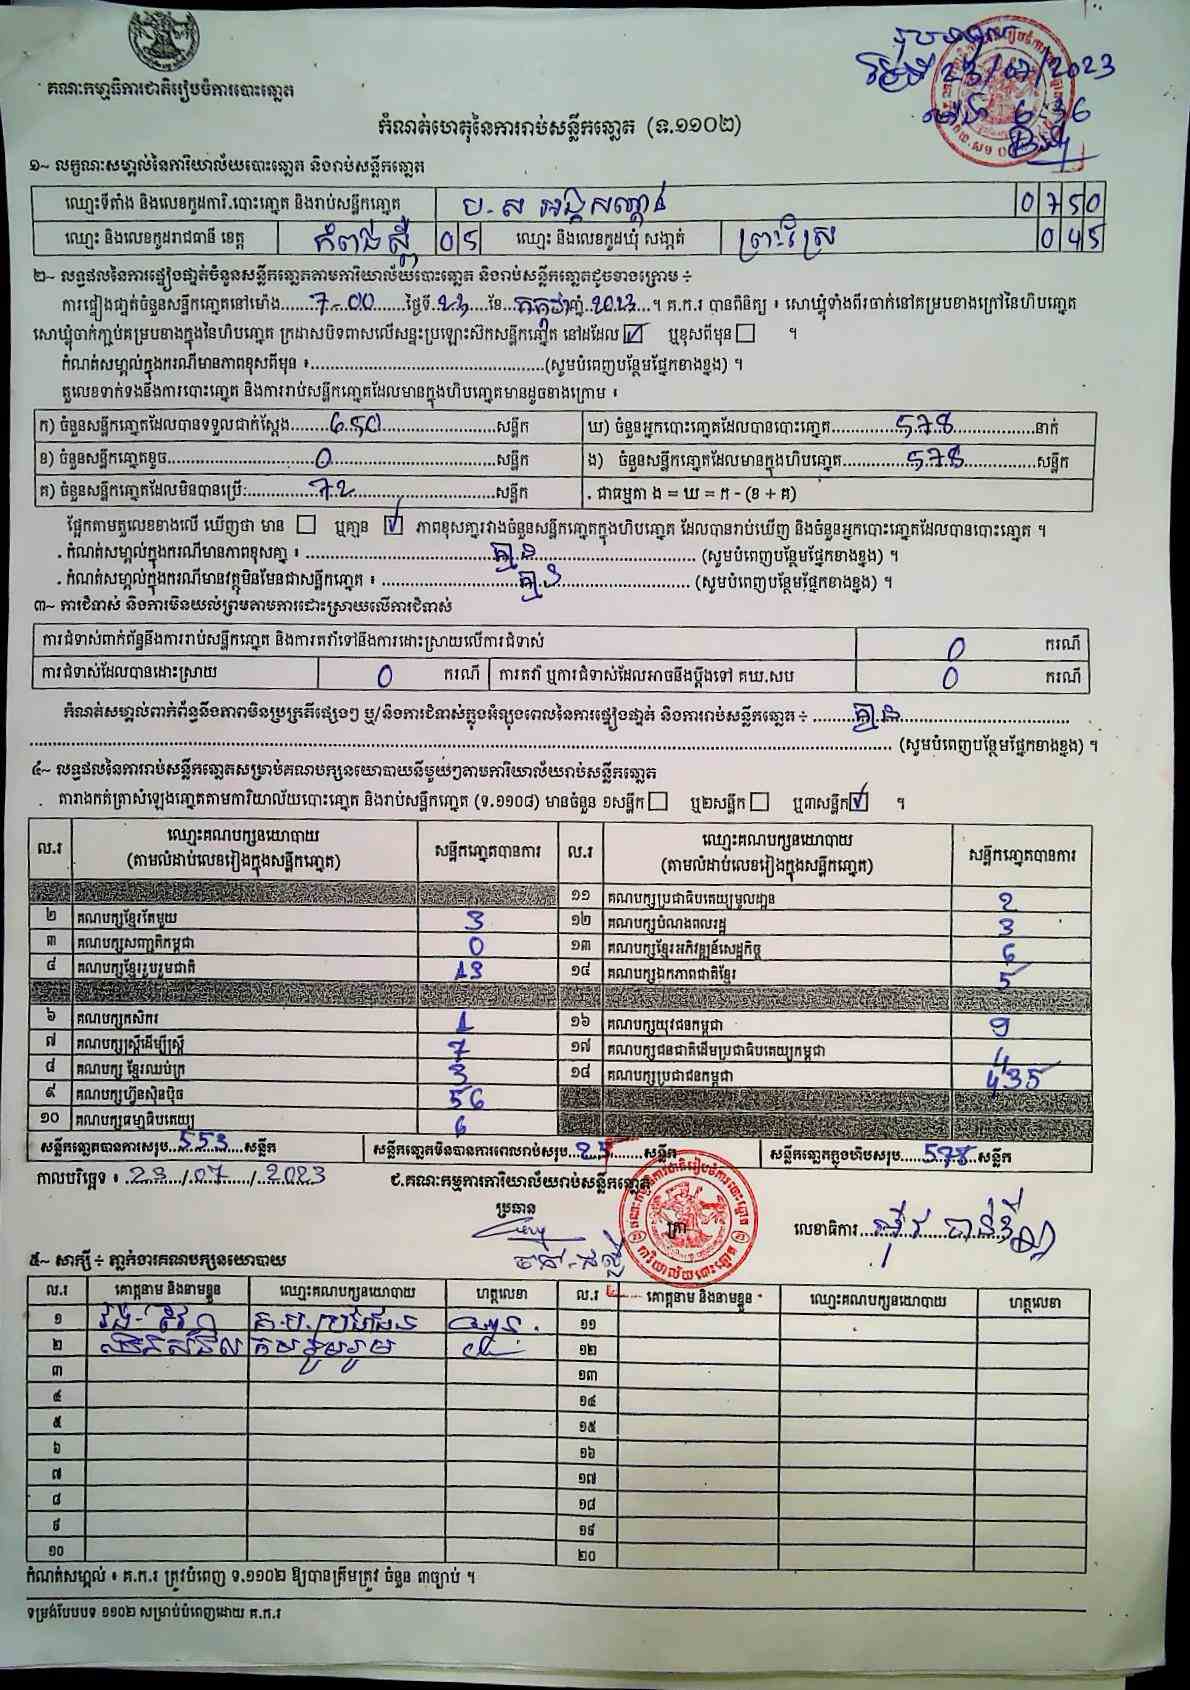 គណៈកម្មាធិការជាតិរៀបចំការបោះឆ្នោត
23/07/2023
កំណត់ហេតុនៃការរាប់សន្លឹកឆ្នោត (ទ.១១០២)
6:36
១~ លក្ខណៈសម្គាល់នៃការិយាល័យបោះឆ្នោត និងរាប់សន្លឹកឆ្នោត
ឈ្មោះទីតាំង និងលេខកូដការិ.បោះឆ្នោត និងរាប់សន្លឹកឆ្នោត 0750
ឈ្មោះ និងលេខកូដរាជធានី ខេត្ត កំពង់ស្ពឺ 05 ឈ្មោះ និងលេខកូដឃុំ សង្កាត់ 045
២~ លទ្ធផលនៃការផ្ទៀងផ្ទាត់ចំនួនសន្លឹកឆ្នោតតាមការិយាល័យបោះឆ្នោត និងរាប់សន្លឹកឆ្នោតដូចខាងក្រោម ÷
ការផ្ទៀងផ្ទាត់ចំនួនសន្លឹកឆ្នោតនៅម៉ោង 7-00 ថ្ងៃទី 23 ខែ កក្កដា ឆ្នាំ 2023 ។ គ.ក.រ បានពិនិត្យ ៖ សោឃ្មុំទាំងពីរចាក់នៅគម្របខាងក្រៅនៃហិបឆ្នោត
សោឃ្មុំចាក់ភ្ជាប់គម្របខាងក្នុងនៃហិបឆ្នោត ក្រដាសបិទពាសលើសន្ទះប្រឡោះស៊កសន្លឹកឆ្នោត នៅដដែល ☑ ឬខុសពីមុន ☐ ។
កំណត់សម្គាល់ក្នុងករណីមានភាពខុសពីមុន ៖ (សូមបំពេញបន្ថែមផ្នែកខាងខ្នង) ។
តួលេខទាក់ទងនឹងការបោះឆ្នោត និងការរាប់សន្លឹកឆ្នោតដែលមានក្នុងហិបឆ្នោតមានដូចខាងក្រោម ៖
ក) ចំនួនសន្លឹកឆ្នោតដែលបានទទួលជាក់ស្តែង 650 សន្លឹក ឃ) ចំនួនអ្នកបោះឆ្នោតដែលបានបោះឆ្នោត 578 នាក់
ខ) ចំនួនសន្លឹកឆ្នោតខូច 0 សន្លឹក ង) ចំនួនសន្លឹកឆ្នោតដែលមានក្នុងហិបឆ្នោត 578 សន្លឹក
គ) ចំនួនសន្លឹកឆ្នោតដែលមិនបានប្រើ: 72 សន្លឹក . ជាធម្មតា ង = ឃ = ក - (ខ + គ)
ផ្អែកតាមតួលេខខាងលើ ឃើញថា មាន ☐ ឬគ្មាន ☑ ភាពខុសគ្នារវាងចំនួនសន្លឹកឆ្នោតក្នុងហិបឆ្នោត ដែលបានរាប់ឃើញ និងចំនួនអ្នកបោះឆ្នោតដែលបានបោះឆ្នោត ។
. កំណត់សម្គាល់ក្នុងករណីមានភាពខុសគ្នា ៖ គ្មាន (សូមបំពេញបន្ថែមផ្នែកខាងខ្នង) ។
. កំណត់សម្គាល់ក្នុងករណីមានវត្ថុមិនមែនជាសន្លឹកឆ្នោត ៖ គ្មាន (សូមបំពេញបន្ថែមផ្នែកខាងខ្នង) ។
៣~ ការជំទាស់ និងការមិនយល់ព្រមតាមការដោះស្រាយលើការជំទាស់
ការជំទាស់ពាក់ព័ន្ធនឹងការរាប់សន្លឹកឆ្នោត និងការតវ៉ាទៅនឹងការដោះស្រាយលើការជំទាស់ 0 ករណី
ការជំទាស់ដែលបានដោះស្រាយ 0 ករណី ការតវ៉ា ឬការជំទាស់ដែលអាចនឹងប្តឹងទៅ គឃ.សប 0 ករណី
កំណត់សម្គាល់ពាក់ព័ន្ធនឹងភាពមិនប្រក្រតីផ្សេងៗ ឬ/និងការជំទាស់ក្នុងអំឡុងពេលនៃការផ្ទៀងផ្ទាត់ និងការរាប់សន្លឹកឆ្នោត ÷ គ្មាន
(សូមបំពេញបន្ថែមផ្នែកខាងខ្នង) ។
៤~ លទ្ធផលនៃការរាប់សន្លឹកឆ្នោតសម្រាប់គណបក្សនយោបាយនីមួយៗតាមការិយាល័យរាប់សន្លឹកឆ្នោត
តារាងកត់ត្រាសំឡេងឆ្នោតតាមការិយាល័យបោះឆ្នោត និងរាប់សន្លឹកឆ្នោត (ទ.១១០៨) មានចំនួន ១សន្លឹក ☐ ឬ២សន្លឹក ☐ ឬ៣សន្លឹក ☑ ។
ល.រ ឈ្មោះគណបក្សនយោបាយ (តាមលំដាប់លេខរៀងក្នុងសន្លឹកឆ្នោត) សន្លឹកឆ្នោតបានការ ល.រ ឈ្មោះគណបក្សនយោបាយ (តាមលំដាប់លេខរៀងក្នុងសន្លឹកឆ្នោត) សន្លឹកឆ្នោតបានការ
១១ គណបក្សប្រជាធិបតេយ្យមូលដ្ឋាន 2
២ គណបក្សខ្មែរតែមួយ 3 ១២ គណបក្សបំណងពលរដ្ឋ 3
៣ គណបក្សសញ្ជាតិកម្ពុជា 0 ១៣ គណបក្សខ្មែរអភិវឌ្ឍន៍សេដ្ឋកិច្ច 6
៤ គណបក្សខ្មែររួបរួមជាតិ 13 ១៤ គណបក្សឯកភាពជាតិខ្មែរ 5
៦ គណបក្សកសិករ 1 ១៦ គណបក្សយុវជនកម្ពុជា 9
៧ គណបក្សស្ត្រីដើម្បីស្ត្រី 7 ១៧ គណបក្សជនជាតិដើមប្រជាធិបតេយ្យកម្ពុជា 4
៨ គណបក្ស ខ្មែរឈប់ក្រ 3 ១៨ គណបក្សប្រជាជនកម្ពុជា 435
៩ គណបក្សហ៊្វុនស៊ិនប៉ិច 56
១០ គណបក្សធម្មាធិបតេយ្យ 6
សន្លឹកឆ្នោតបានការសរុប 553 សន្លឹក សន្លឹកឆ្នោតមិនបានការពេលរាប់សរុប 25 សន្លឹក សន្លឹកឆ្នោតក្នុងហិបសរុប 578 សន្លឹក
កាលបរិច្ឆេទ ៖ 23/07/2023 ជ.គណៈកម្មការការិយាល័យរាប់សន្លឹកឆ្នោត
ប្រធាន ត្រា លេខាធិការ
៥~ សាក្សី ÷ ភ្នាក់ងារគណបក្សនយោបាយ
ល.រ គោត្តនាម និងនាមខ្លួន ឈ្មោះគណបក្សនយោបាយ ហត្ថលេខា ល.រ គោត្តនាម និងនាមខ្លួន ឈ្មោះគណបក្សនយោបាយ ហត្ថលេខា
១ ១១
២ ១២
៣ ១៣
៤ ១៤
៥ ១៥
៦ ១៦
៧ ១៧
៨ ១៨
៩ ១៩
១០ ២០
កំណត់សម្គាល់ ៖ គ.ក.រ ត្រូវបំពេញ ទ.១១០២ ឱ្យបានត្រឹមត្រូវ ចំនួន ៣ច្បាប់ ។
ទម្រង់បែបបទ ១១០២ សម្រាប់បំពេញដោយ គ.ក.រ